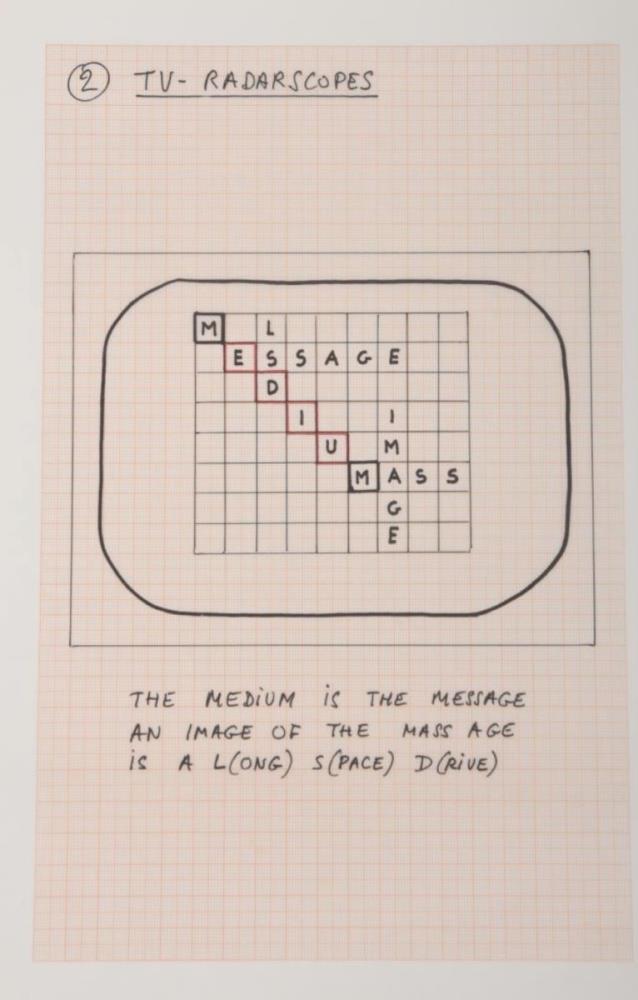 2 TV- RADARSCOPES
M L
E S S A G E
D
I I
U M
M A S S
G
E
THE MEDIUM IS THE MESSAGE
AN IMAGE OF THE MASS AGE
IS A L(ONG) S(PACE) D(RIVE)